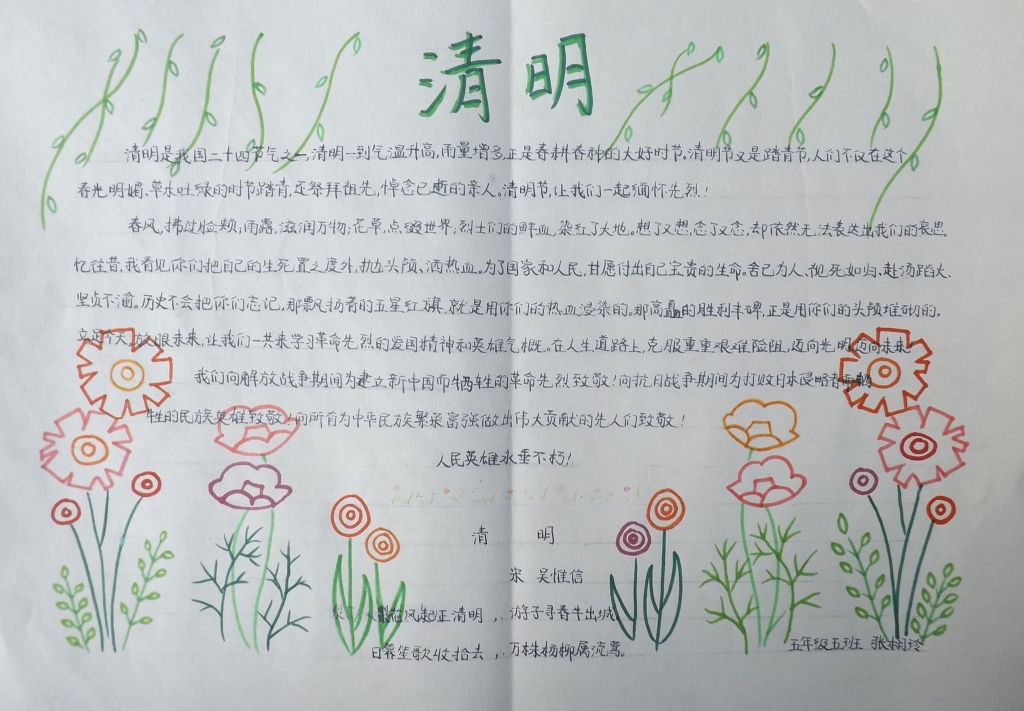 清明
清明是我国二十四节气之一,清明一到气温升高,雨量增多,正是春耕春种的大好时节。清明节又是踏青节,人们不仅在这个
春光明媚、草木吐绿的时节踏青,还祭拜祖先,悼念已逝的亲人。清明节,让我们一起缅怀先烈!
春风,拂过脸颊;雨露,滋润万物;花草,点缀世界;烈士们的鲜血,染红了大地。想了又想,念了又念,却依然无法表达出我们的哀思。
忆往昔,我看见你们把自己的生死置之度外,抛头颅、洒热血。为了国家和人民,甘愿付出自己宝贵的生命。舍己为人、视死如归、赴汤蹈火、
坚贞不渝。历史不会把你们忘记,那飘扬着的五星红旗,就是用你们的热血浸染的。那高矗的胜利丰碑,正是用你们的头颅堆砌的。
立足今天,放眼未来,让我们一共来学习革命先烈的爱国精神和英雄气概。在人生道路上,克服重重艰难险阻,迈向光明,迈向未来。
我们向解放战争期间为建立新中国而牺牲的革命先烈致敬!向抗日战争期间为打败日本侵略者而牺
牲的民族英雄致敬!向所有为中华民族繁荣富强做出伟大贡献的先人们致敬!
人民英雄永垂不朽!
清 明
宋 吴惟信
花风起正清明,游子寻春半出城。
日暮笙歌收拾去,万株杨柳属流莺。
五年级五班 张栩玲